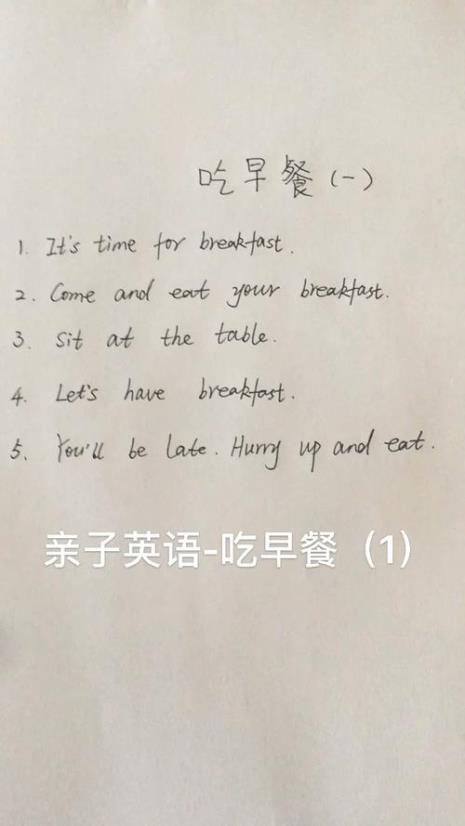 吃早餐(一)
1. It's time for breakfast.
2. Come and eat your breakfast.
3. Sit at the table.
4. Let's have breakfast.
5. You'll be late. Hurry up and eat.
亲子英语-吃早餐（1）